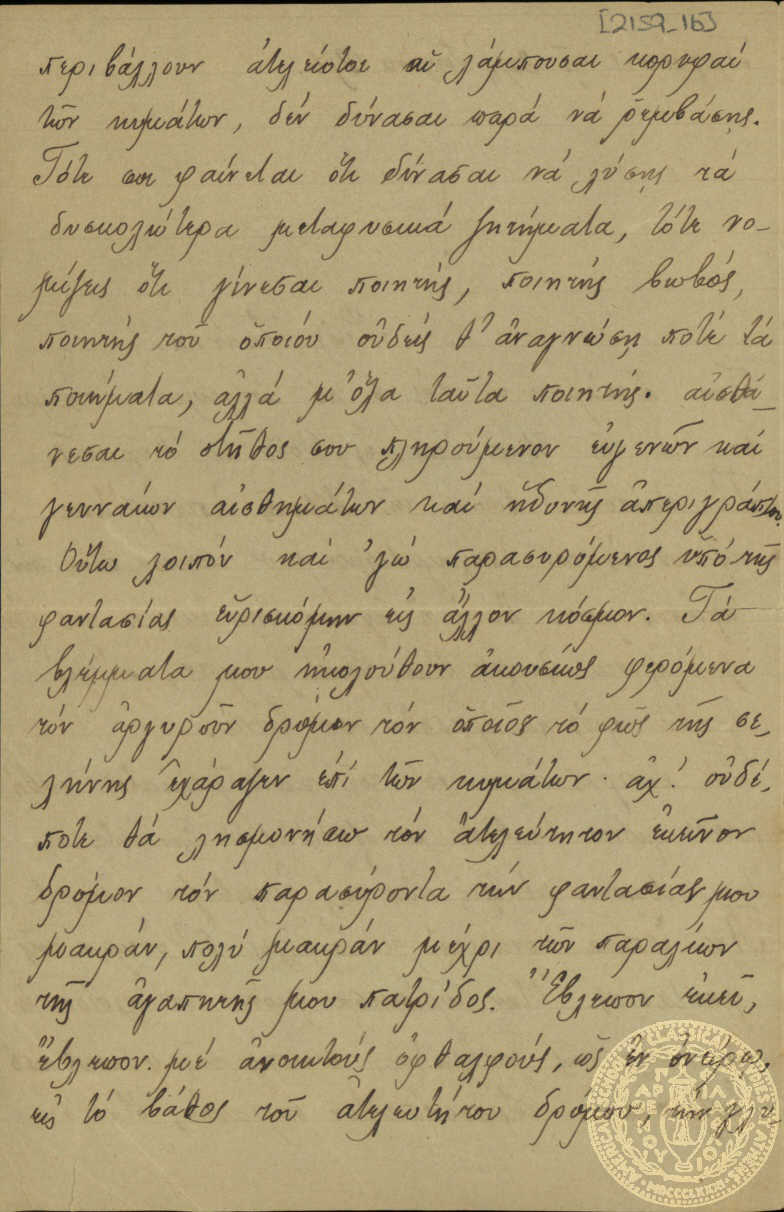 [2159_16]
περιβάλλουν ἀτελείωτοι αἱ λάμπουσαι κορυφαί
τῶν κυμάτων, δέν δύνασαι παρά νά ῥεμβάσης.
Τότε σοι φαίνεται ὅτι δύνασαι νά λύσης τά
δυσκολώτερα μεταφυσικά ζητήματα, τότε νο-
μίζεις ὅτι γίνεσαι ποιητής, ποιητής βωβός,
ποιητής τοῦ ὁποίου οὐδείς θ' ἀναγνώση ποτέ τά
ποιήματα, ἀλλά μ' ὅλα ταῦτα ποιητής. αἰσθά-
νεσαι τό στῆθος σου πληρούμενον εὐγενῶν καί
γενναίων αἰσθημάτων καί ἡδονῆς ἀπεριγράπτου.
Οὕτω λοιπόν καί 'γώ παρασυρόμενος ὑπό τῆς
φαντασίας εὑρισκόμην εἰς ἄλλον κόσμον. Τά
βλέμματα μου ἠκολούθουν ἀκουσίως φερόμενα
τόν ἀργυροῦν δρόμον τόν ὁποῖος τό φῶς τῆς σε-
λήνης ἐχάραζεν ἐπί τῶν κυμάτων. ἀχ! οὐδέ-
ποτε θά λησμονήσω τόν ἀτελεύτητον ἐκεῖνον
δρόμον τόν παρασύροντα τήν φαντασίαν μου
μακράν, πολύ μακράν μέχρι τῶν παραλίων
τῆς ἀγαπητῆς μου πατρίδος. Ἔβλεπον ἐκεῖ,
ἔβλεπον μέ ἀνοικτούς ὀφθαλμούς, ὡς ἐν ὀνείρω,
εἰς τό βάθος τοῦ ἀτελευτήτου δρόμου, τήν γλυ-